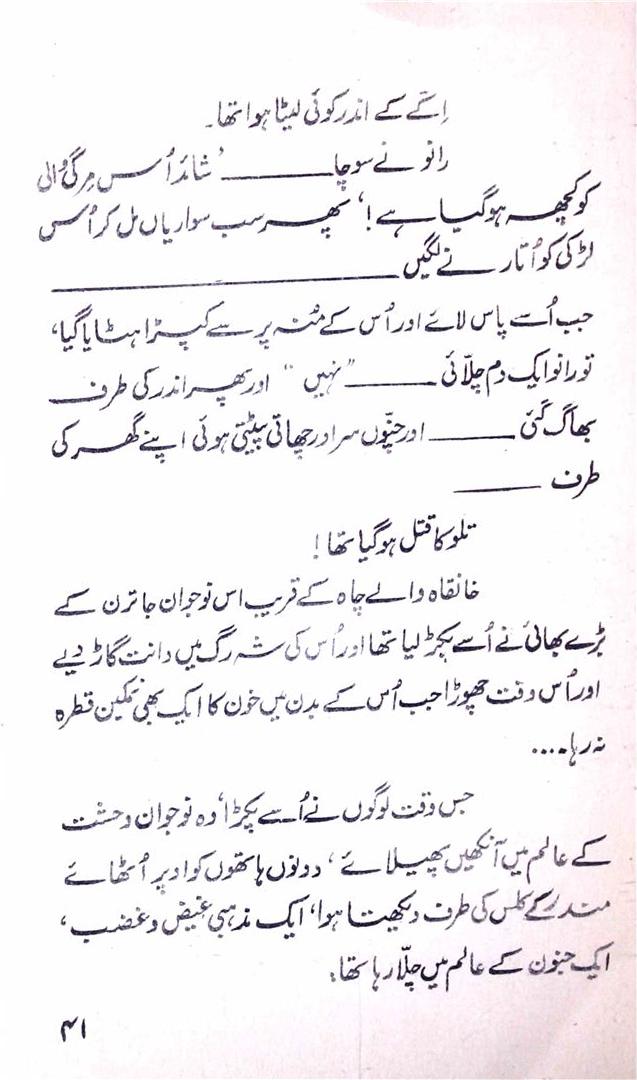 اِکّے کے اندر کوئی لیٹا ہوا تھا۔
رانو نے سوچا ــــــــ ’شائد اُس مِرگی والی
کو کچھ ہو گیا ہے!‘ پھر سب سواریاں مل کر اُس
لڑکی کو اُتارنے لگیں ــــــــــــــــ
جب اُسے پاس لائے اور اُس کے مُنہ پر سے کپڑا ہٹایا گیا،
تو رانو ایک دم چلّائی ــــــــ ”نہیں“ اور پھر اندر کی طرف
بھاگ گئی ــــــــ اور جنّوں سر اور چھاتی پیٹتی ہوئی اپنے گھر کی
طرف ــــــــ
تلوکا قتل ہو گیا تھا!
خانقاہ والے چاہ کے قریب اس نوجوان جاترن کے
بڑے بھائی نے اُسے پکڑ لیا تھا اور اُس کی شہ رگ میں دانت گاڑ دیے
اور اُس وقت چھوڑا جب اُس کے بدن میں خون کا ایک بھی نمکین قطرہ
نہ رہا۔...
جس وقت لوگوں نے اُسے پکڑا، وہ نوجوان وحشت
کے عالم میں آنکھیں پھیلائے، دونوں ہاتھوں کو اوپر اُٹھائے
مندر کے کلس کی طرف دیکھتا ہوا، ایک مذہبی غیض و غضب،
ایک جنون کے عالم میں چلّا رہا تھا۔
۴۱